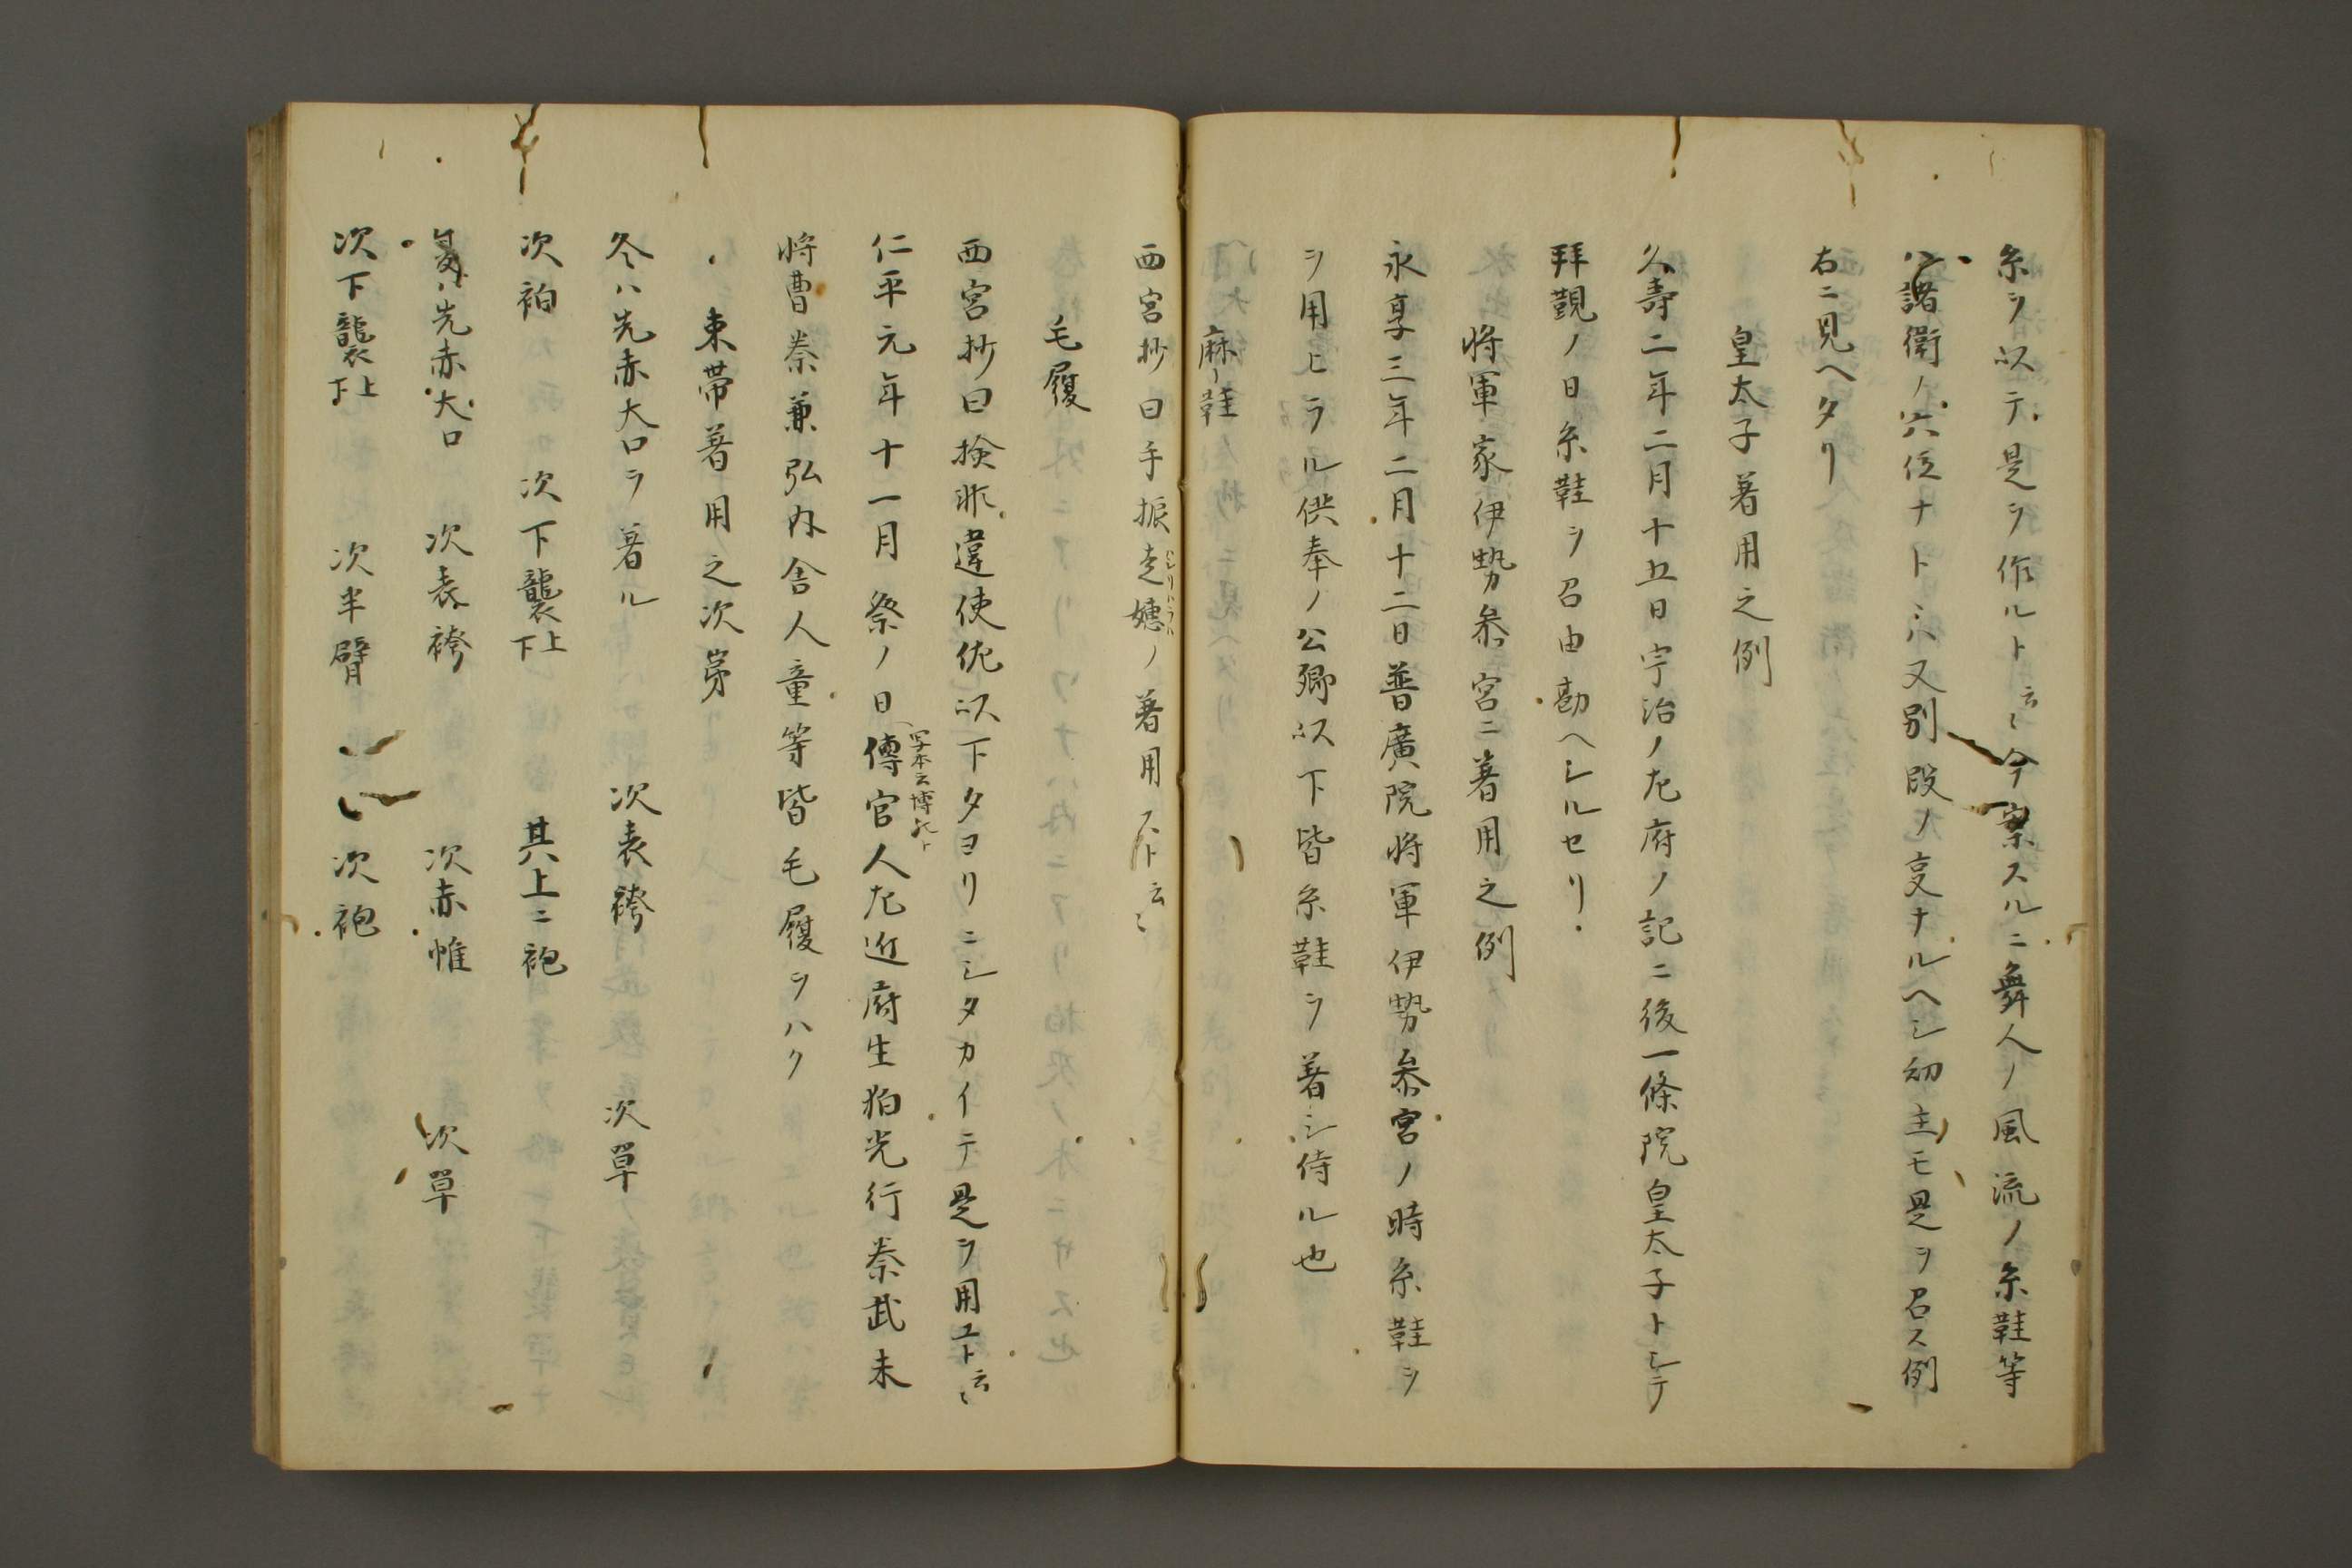 糸ヲ以テ是ヲ作ルト云〻今案スルニ舞人ノ風流ノ糸鞋等
ハ諸衛ノ六位ナトニハ又別段ノ㕝ナルヘシ幼主モ是ヲ召ス例
右ニ見ヘタリ
皇太子著用之例
久壽二年二月十五日宇治ノ左府ノ記ニ後一條院皇太子トシテ
拜覲ノ日糸鞋ヲ召由勘ヘシルセリ
將軍家伊勢参宮ニ著用之例
永享三年二月十二日普廣院將軍伊勢参宮ノ時糸鞋ヲ
ヲ用ヒラル供奉ノ公卿以下皆糸鞋ヲ著シ侍ル也
麻鞋
西宮抄曰手振走孋ノ著用スト云〻
毛履
西宮抄曰検非違使佐以下タヨリニシタカイテ是ヲ用ユト云〻
仁平元年十一月祭ノ日傳官人左近府生狛光行秦武末
写本云博
將曹秦兼弘内舎人童等皆毛履ヲハク
束帯著用之次第
冬ハ先赤大口ヲ著ル 次表袴 次單
次衵 次下襲上下 其上ニ袍
夏ハ先赤大口 次表袴 次赤帷 次單
次下襲上下 次半臂 次袍